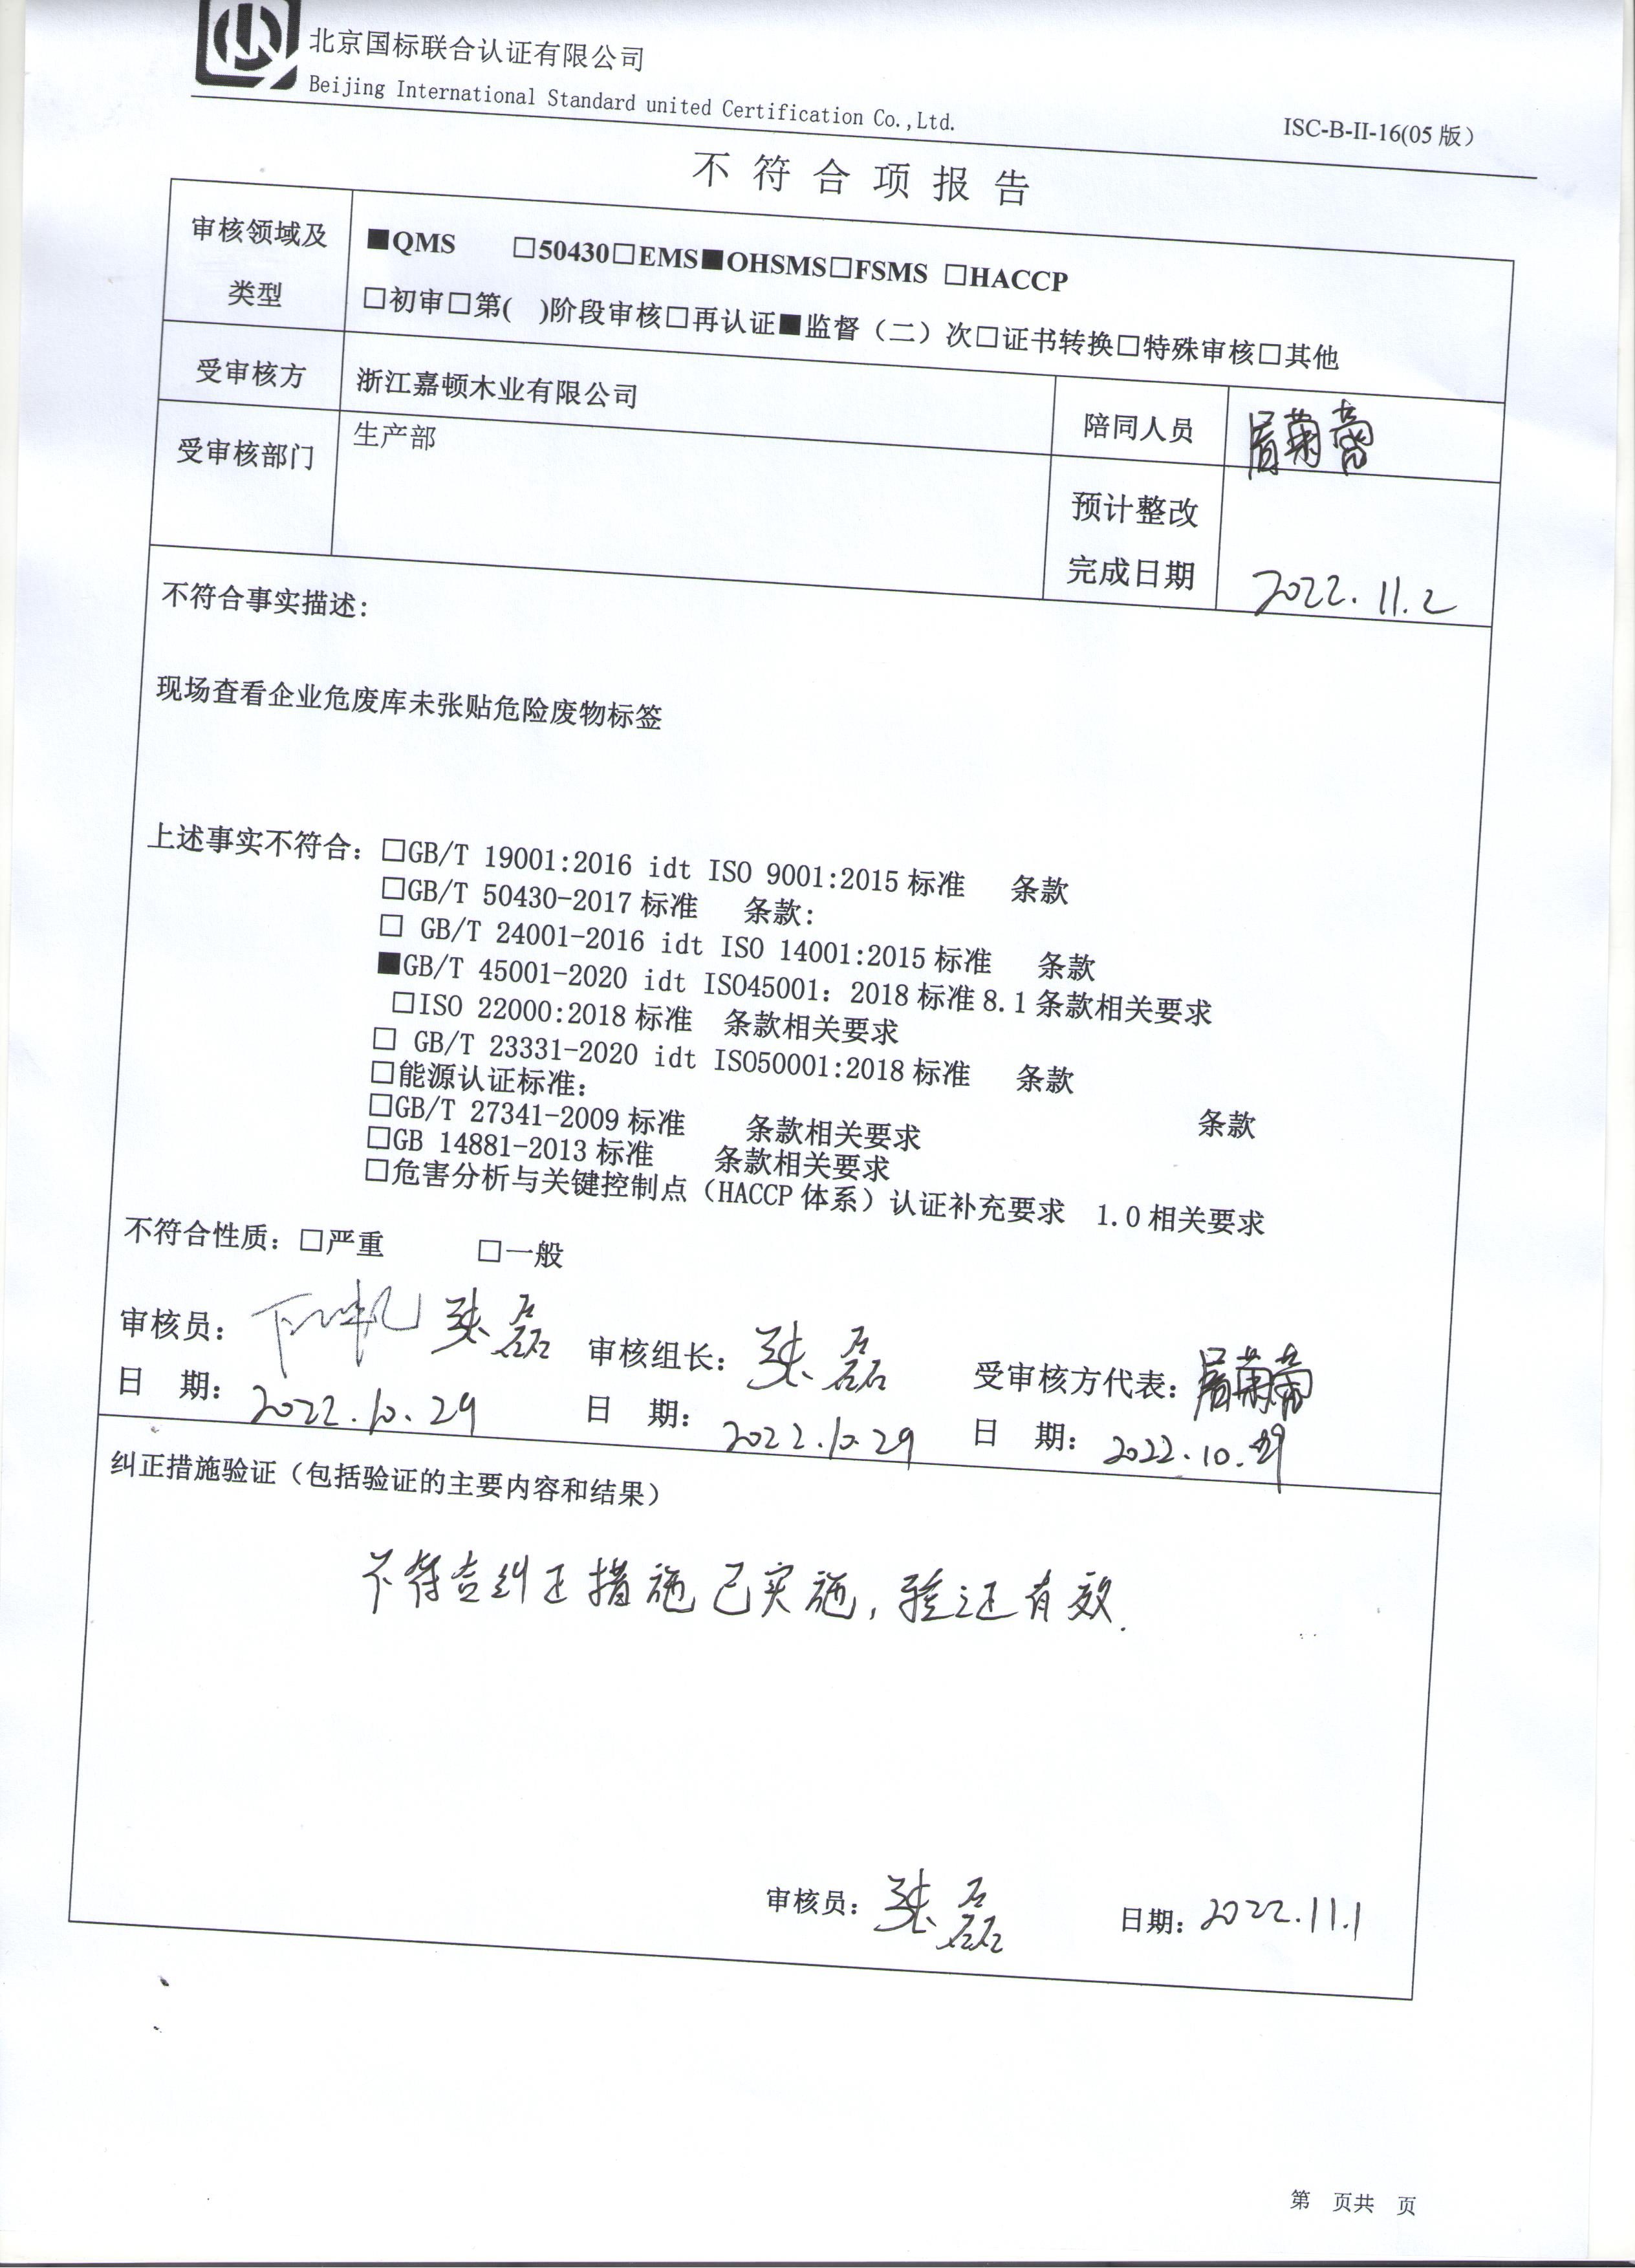 北京国标联合认证有限公司
Beijing International Standard united Certification Co.,Ltd.
ISC-B-II-16(05 版)
不符合项报告
审核领域及类型
■QMS □50430□EMS■OHSMS□FSMS □HACCP
□初审□第( )阶段审核□再认证■监督（二）次□证书转换□特殊审核□其他
受审核方 浙江嘉顿木业有限公司 陪同人员
受审核部门 生产部 预计整改完成日期 2022.11.2
不符合事实描述:
现场查看企业危废库未张贴危险废物标签
上述事实不符合: □GB/T 19001:2016 idt ISO 9001:2015 标准 条款
□GB/T 50430-2017 标准 条款:
□ GB/T 24001-2016 idt ISO 14001:2015 标准 条款
■GB/T 45001-2020 idt ISO45001: 2018 标准 8.1 条款相关要求
□ISO 22000:2018 标准 条款相关要求
□ GB/T 23331-2020 idt ISO50001:2018 标准 条款
□能源认证标准: 条款
□GB/T 27341-2009 标准 条款相关要求
□GB 14881-2013 标准 条款相关要求
□危害分析与关键控制点（HACCP 体系）认证补充要求 1.0 相关要求
不符合性质: □严重 □一般
审核员: 张磊 审核组长: 张磊 受审核方代表:
日 期: 2022.10.29 日 期: 2022.10.29 日 期: 2022.10.29
纠正措施验证（包括验证的主要内容和结果）
不符合纠正措施已实施，验证有效.
审核员: 张磊 日期: 2022.11.1
第 页共 页